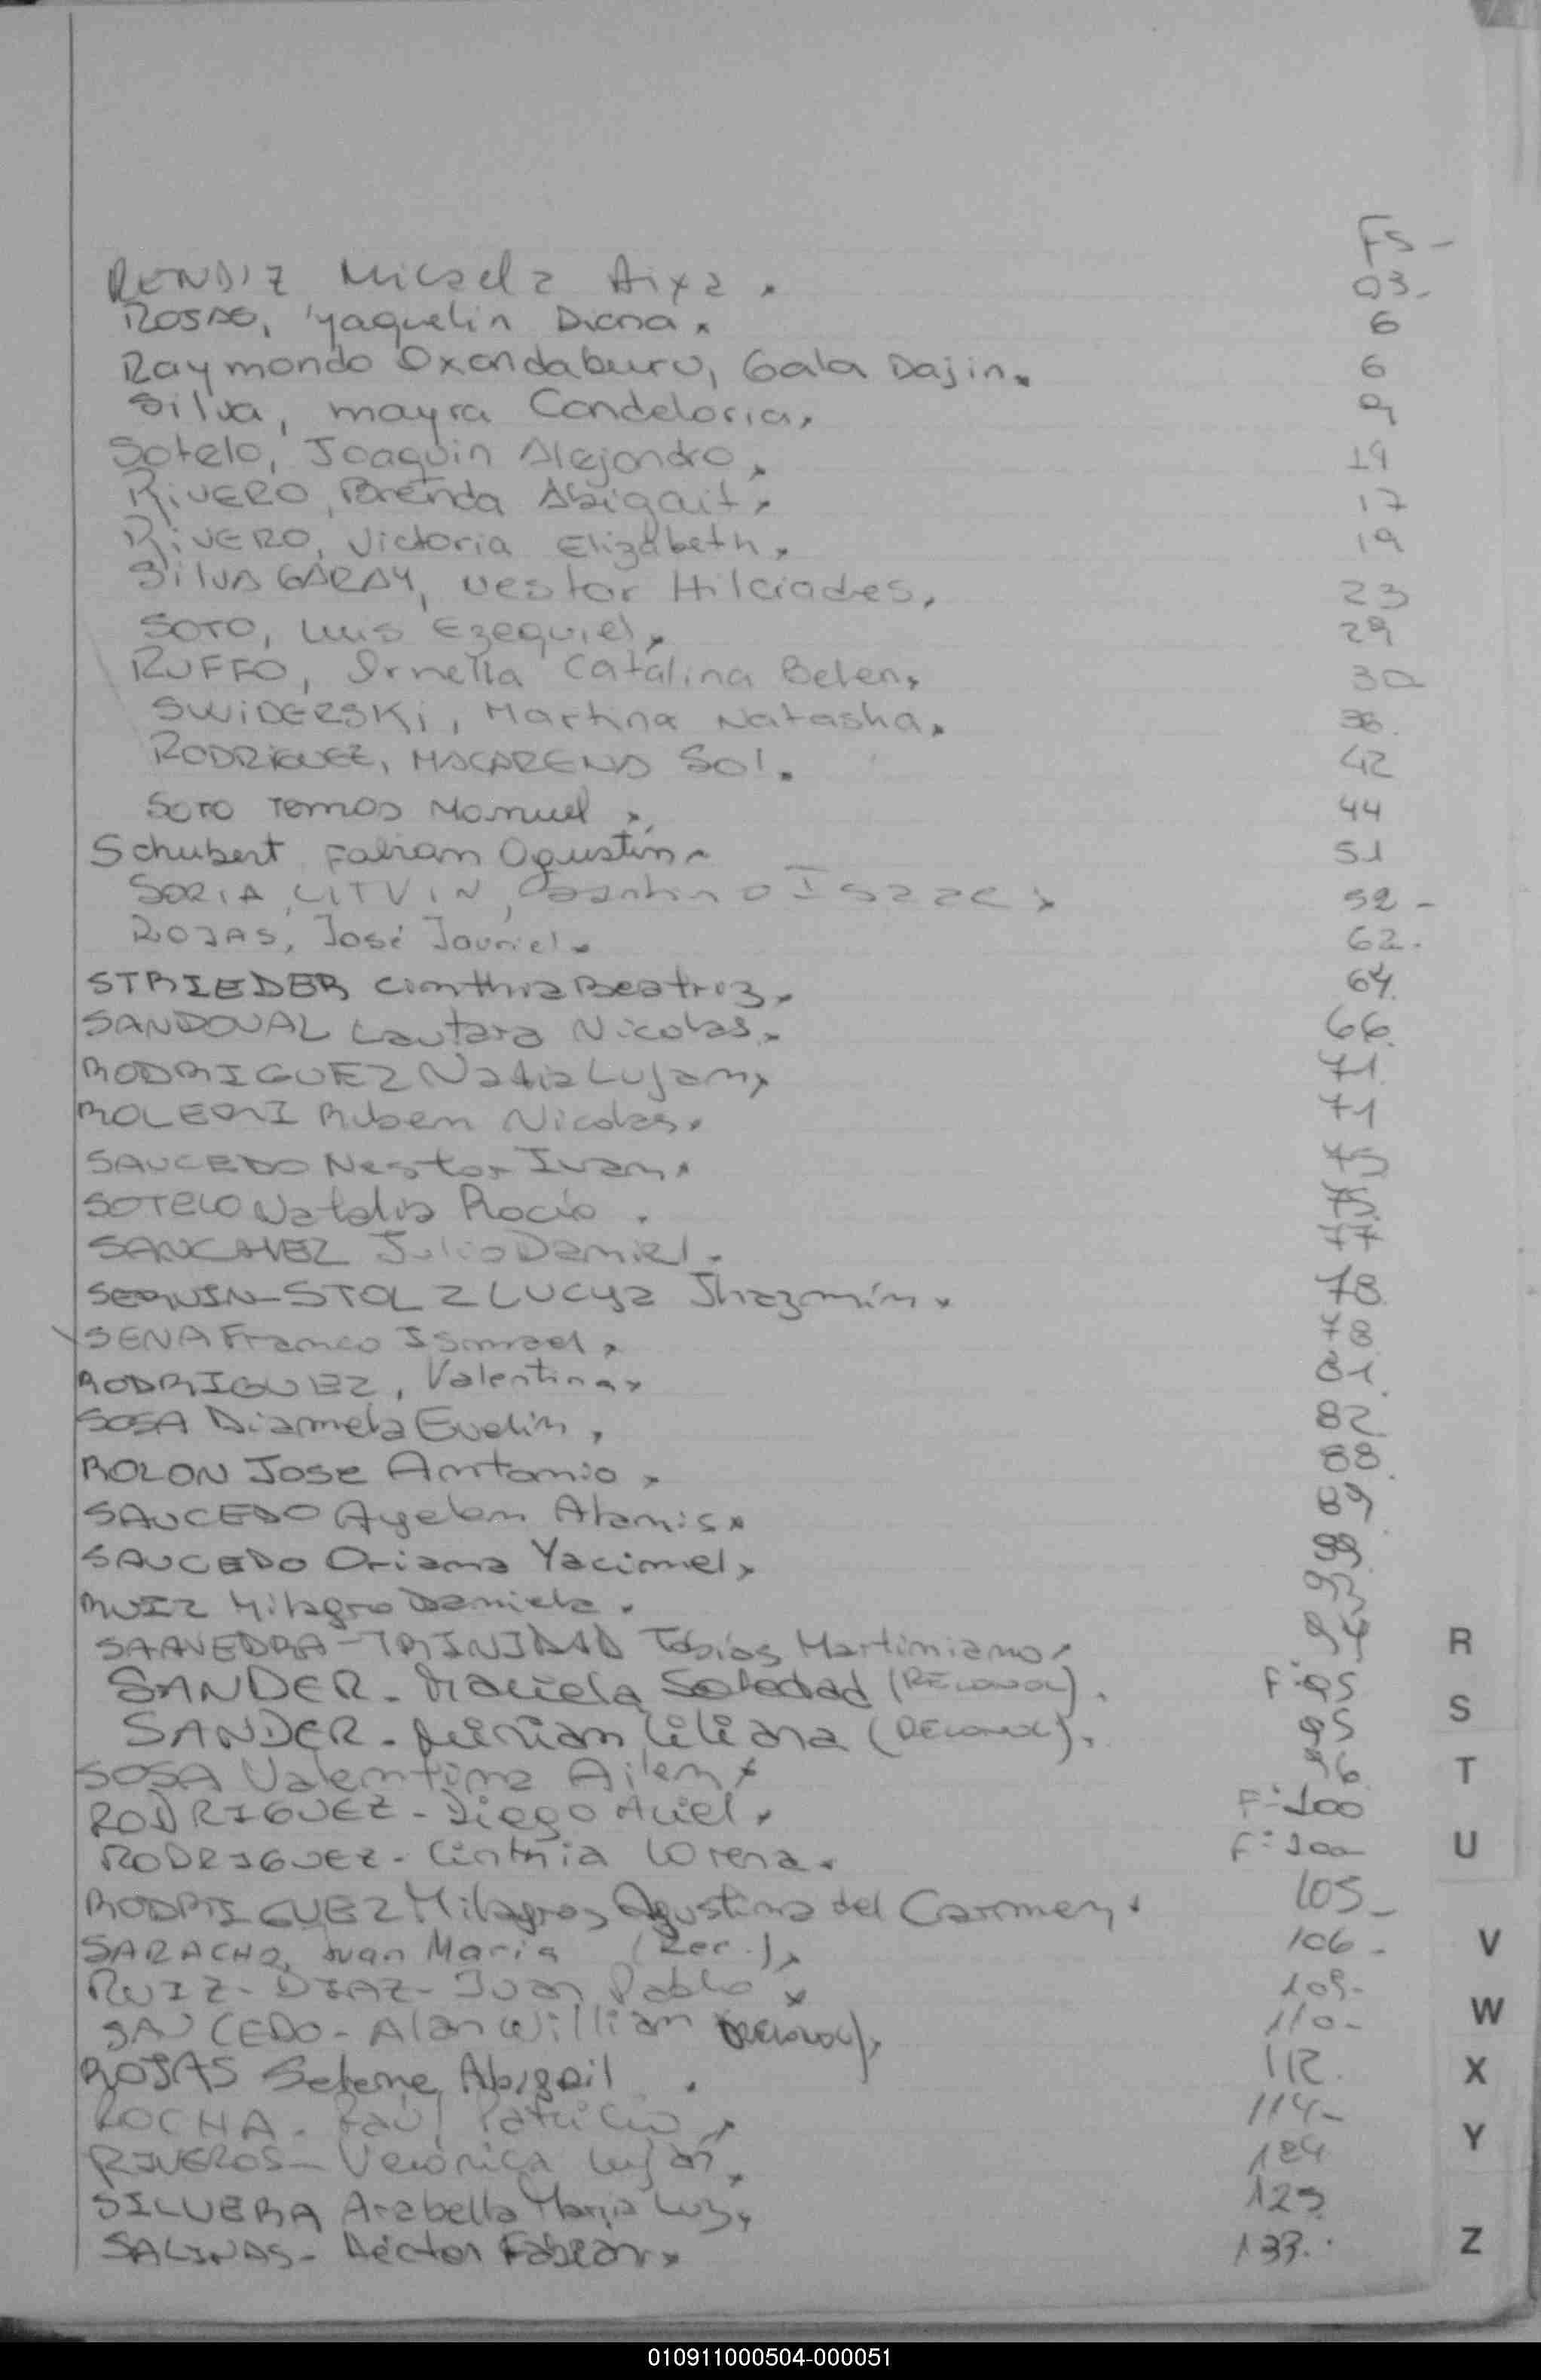 Fs-
RENDIZ Micaela Aixa. 03-
ROSAS, Yaquelin Diana. 6
Raymondo Oxandaburu, Gala Dajin. 6
Silva, mayra Candelaria. 9
Sotelo, Joaquin Alejandro. 19
RIVERO, Brenda Abigail. 17
RIVERO, Victoria Elizabeth. 19
SILVA GARAY, Nestor Milciades. 23
SOTO, Luis Ezequiel. 29
RUFFO, Ornella Catalina Belen. 30
SWIDERSKI, Martina Natasha. 36.
RODRIGUEZ, MACARENA Sol. 42
SOTO Tomas Manuel. 44
Schubert Fabian Agustin. 51
SORIA LITVIN, Santino ISaac 52-
ROJAS, José Javriel. 62.
STRIEDER Cinthia Beatriz. 64.
SANDOVAL Lautaro Nicolas. 66.
RODRIGUEZ Natia Lujan. 71.
Ruben Nicolas. 71
SAUCEDO Nestor Ivan. 75
SOTELO Natalia Rocio. 75.
SANCHEZ Julio Daniel. 77
STOLZ LUCya Jhazmín. 78.
SENA Franco Ismael. 78
RODRIGUEZ, Valentina. 81.
SOSA Diamela Evelin. 82.
ROLON Jose Antonio. 88.
SAUCEDO Ayelen 89
SAUCEDO Oriana Yacimel.
RUIZ Milagro Daniela.
SAAVEDRA-TRINIDAD Tobías Martiniano. 94
SANDER- Mariela Soledad (RECONOC). F:95
SANDER- Mirian Liliana (RECONOC). 95
SOSA Valentina Ailen. 96
RODRIGUEZ-Diego Ariel. F:100
RODRIGUEZ- Cinthia Lorena. F:100
RODRIGUEZ Milagros Agustina del Carmen. 105-
SARACHO, Juan Maria (Rec.). 106-
RUIZ-DIAZ-Juan Pablo 109-
SAUCEDO-Alan Willian (RECONOC). 110-
ROJAS Selene Abigail. 112.
ROCHA- Raúl Patricio. 114-
RIVEROS-Verónica Luján. 124
SILVERA Arabella Maria Luz. 129.
SALINAS- Héctor Fabián. 133.
R
S
T
U
V
W
X
Y
Z
010911000504-000051